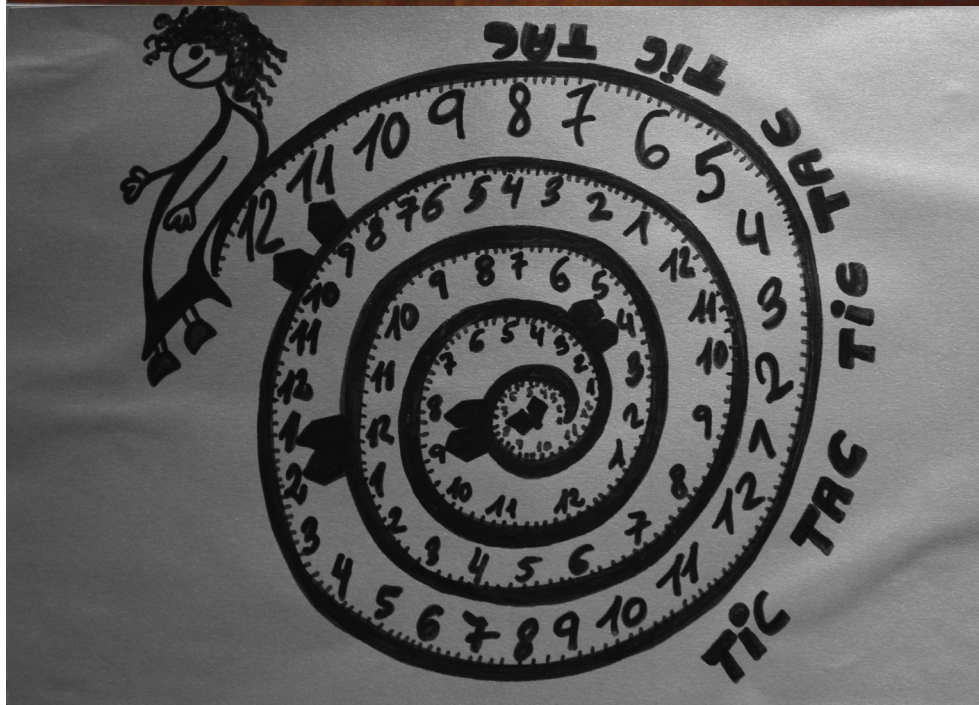 TiC TAC TiC TAC TiC TAC
12 11 10 9 8 7 6 5 4 3 2 1 12 11 10 9 8 7 6 5 4 3 2 1 12 11 10 9 8 7 6 5 4 3 2 1 12 11 10 9 8 7 6 5 4 3 2 1 12 11 10 9 8 7 6 5 4 3 2 1 12 11 10 9 8 7 6 5 4 3 2 1